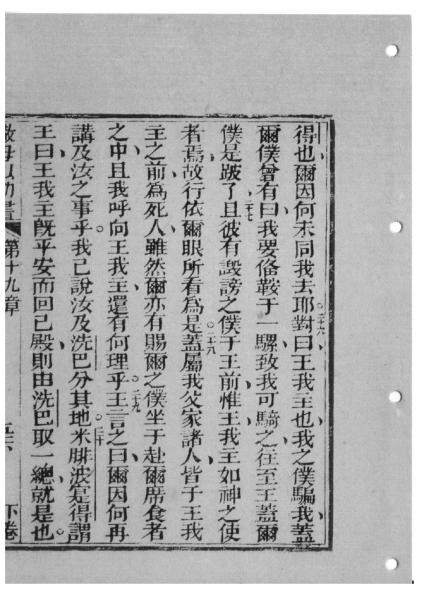 得也爾因何未同我去二十六耶對曰王我主也我之僕騙我蓋
爾僕曾有曰我要俻鞍于一騾致我可騎之往至王蓋爾
僕是跛了二十七且彼有譭謗之僕于王前惟王我主如神之使
者焉故行依爾眼所看為是二十八蓋屬我父家諸人皆于王我
主之前為死人雖然爾亦有賜爾之僕坐于赴爾席食者
之中且我呼向王我主還有何理乎二十九王言之曰爾因何再
講及汝之事乎我已說汝及洗巴分其地三十米腓波寔得謂
王曰王我主既平安而回己殿則由洗巴取一總就是也
第十九章
下卷